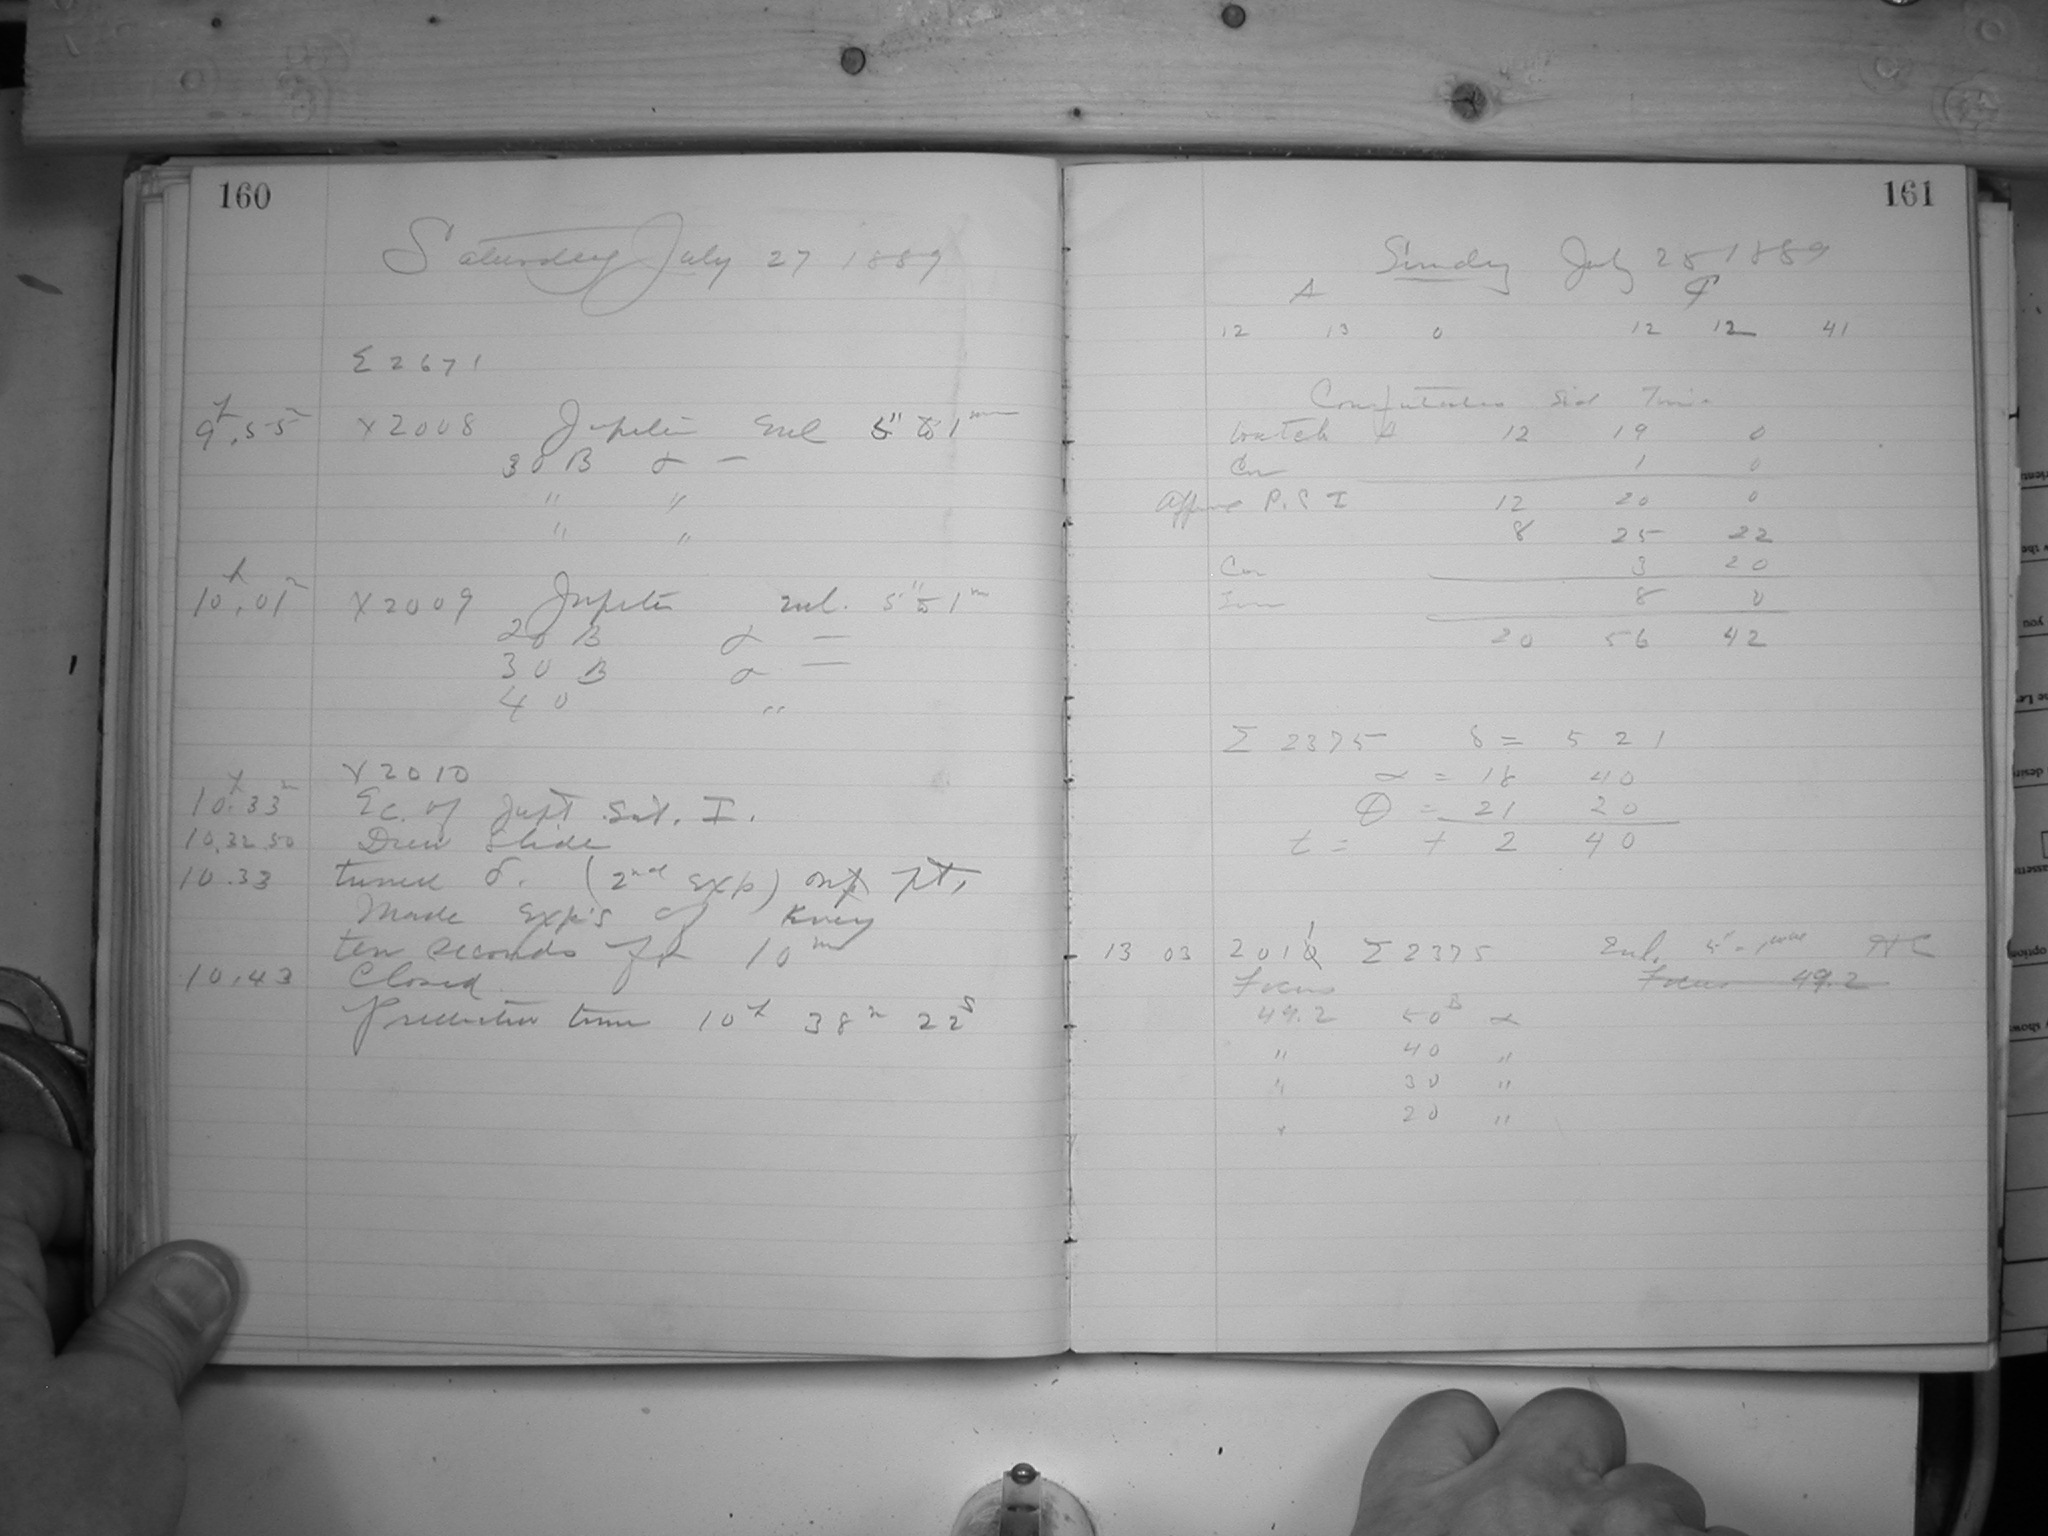 160
Saturday July 27 1889
Σ 2671
9h.55m X2008 Jupiter Enl 5" to 1mm
30 B α —
" "
" "
10h.01m X2009 Jupiter Enl. 5" to 1m
20 B α —
30 B α —
40 "
X2010
10h.33m Ec. of Jupt Sat. I.
10.32.50 Drew Slide
10.33 turned δ. (2nd exp) on pt.
Made exp's of every
ten seconds for 10m
10.43 Closed
Prediction time 10h 38m 22s
161
Sunday July 28 1889
A
12 13 0 12 12 41
Computation Sid Time
Watch A 12 19 0
Cor 1 0
12 20 0
8 25 22
Cor 3 20
8 0
20 56 42
Σ 2375 δ = 5 21
α = 18 40
θ = 21 20
t = + 2 40
13 03 2011 Σ 2375 Enl. 5" = 1mm
Focus Focus 49.2
49.2 50B α
" 40 "
" 30 "
" 20 "